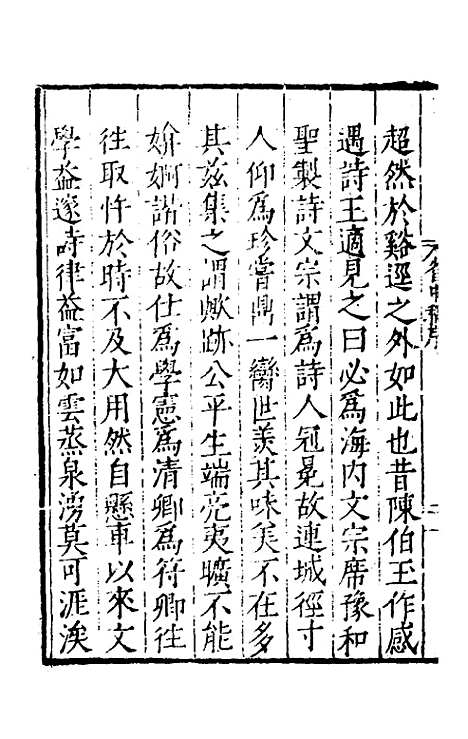 超然於谿逕之外如此也昔陳伯玉作感
遇詩王適見之曰必爲海內文宗席豫和
聖製詩文宗謂爲詩人冠冕故連城徑寸
人仰爲珍嘗鼎一臠世羡其味矣不在多
其茲集之謂歟跡公平生端亮夷曠不能
媕婀諧俗故仕爲學憲爲清卿爲符卿徃
徃取忤於時不及大用然自懸車以來文
學益邃詩律益富如雲蒸泉湧莫可涯涘